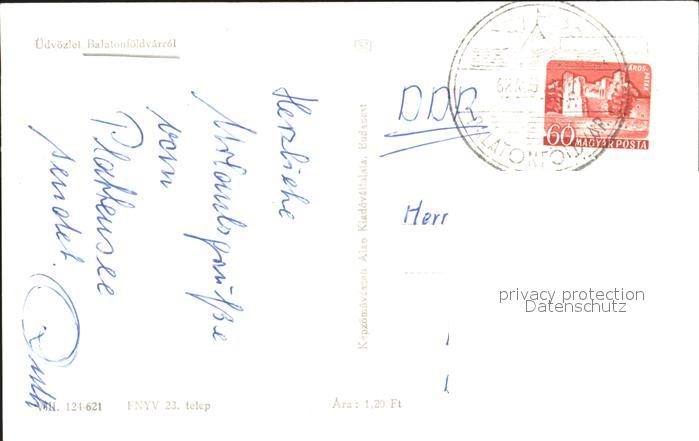 Üdvözlet Balatonföldvárról
Herzliche
Urlaubsgrüße
vom
Plattensee
sendet
Képzőművészeti Alap Kiadóvállalata, Budapest
DDR
Herr
BALATONFÖLDVÁR
SÁROSPATAK
60
MAGYAR POSTA
privacy protection
Datenschutz
VIII. 124-621 FNYV 23. telep
Ára: 1,20 Ft